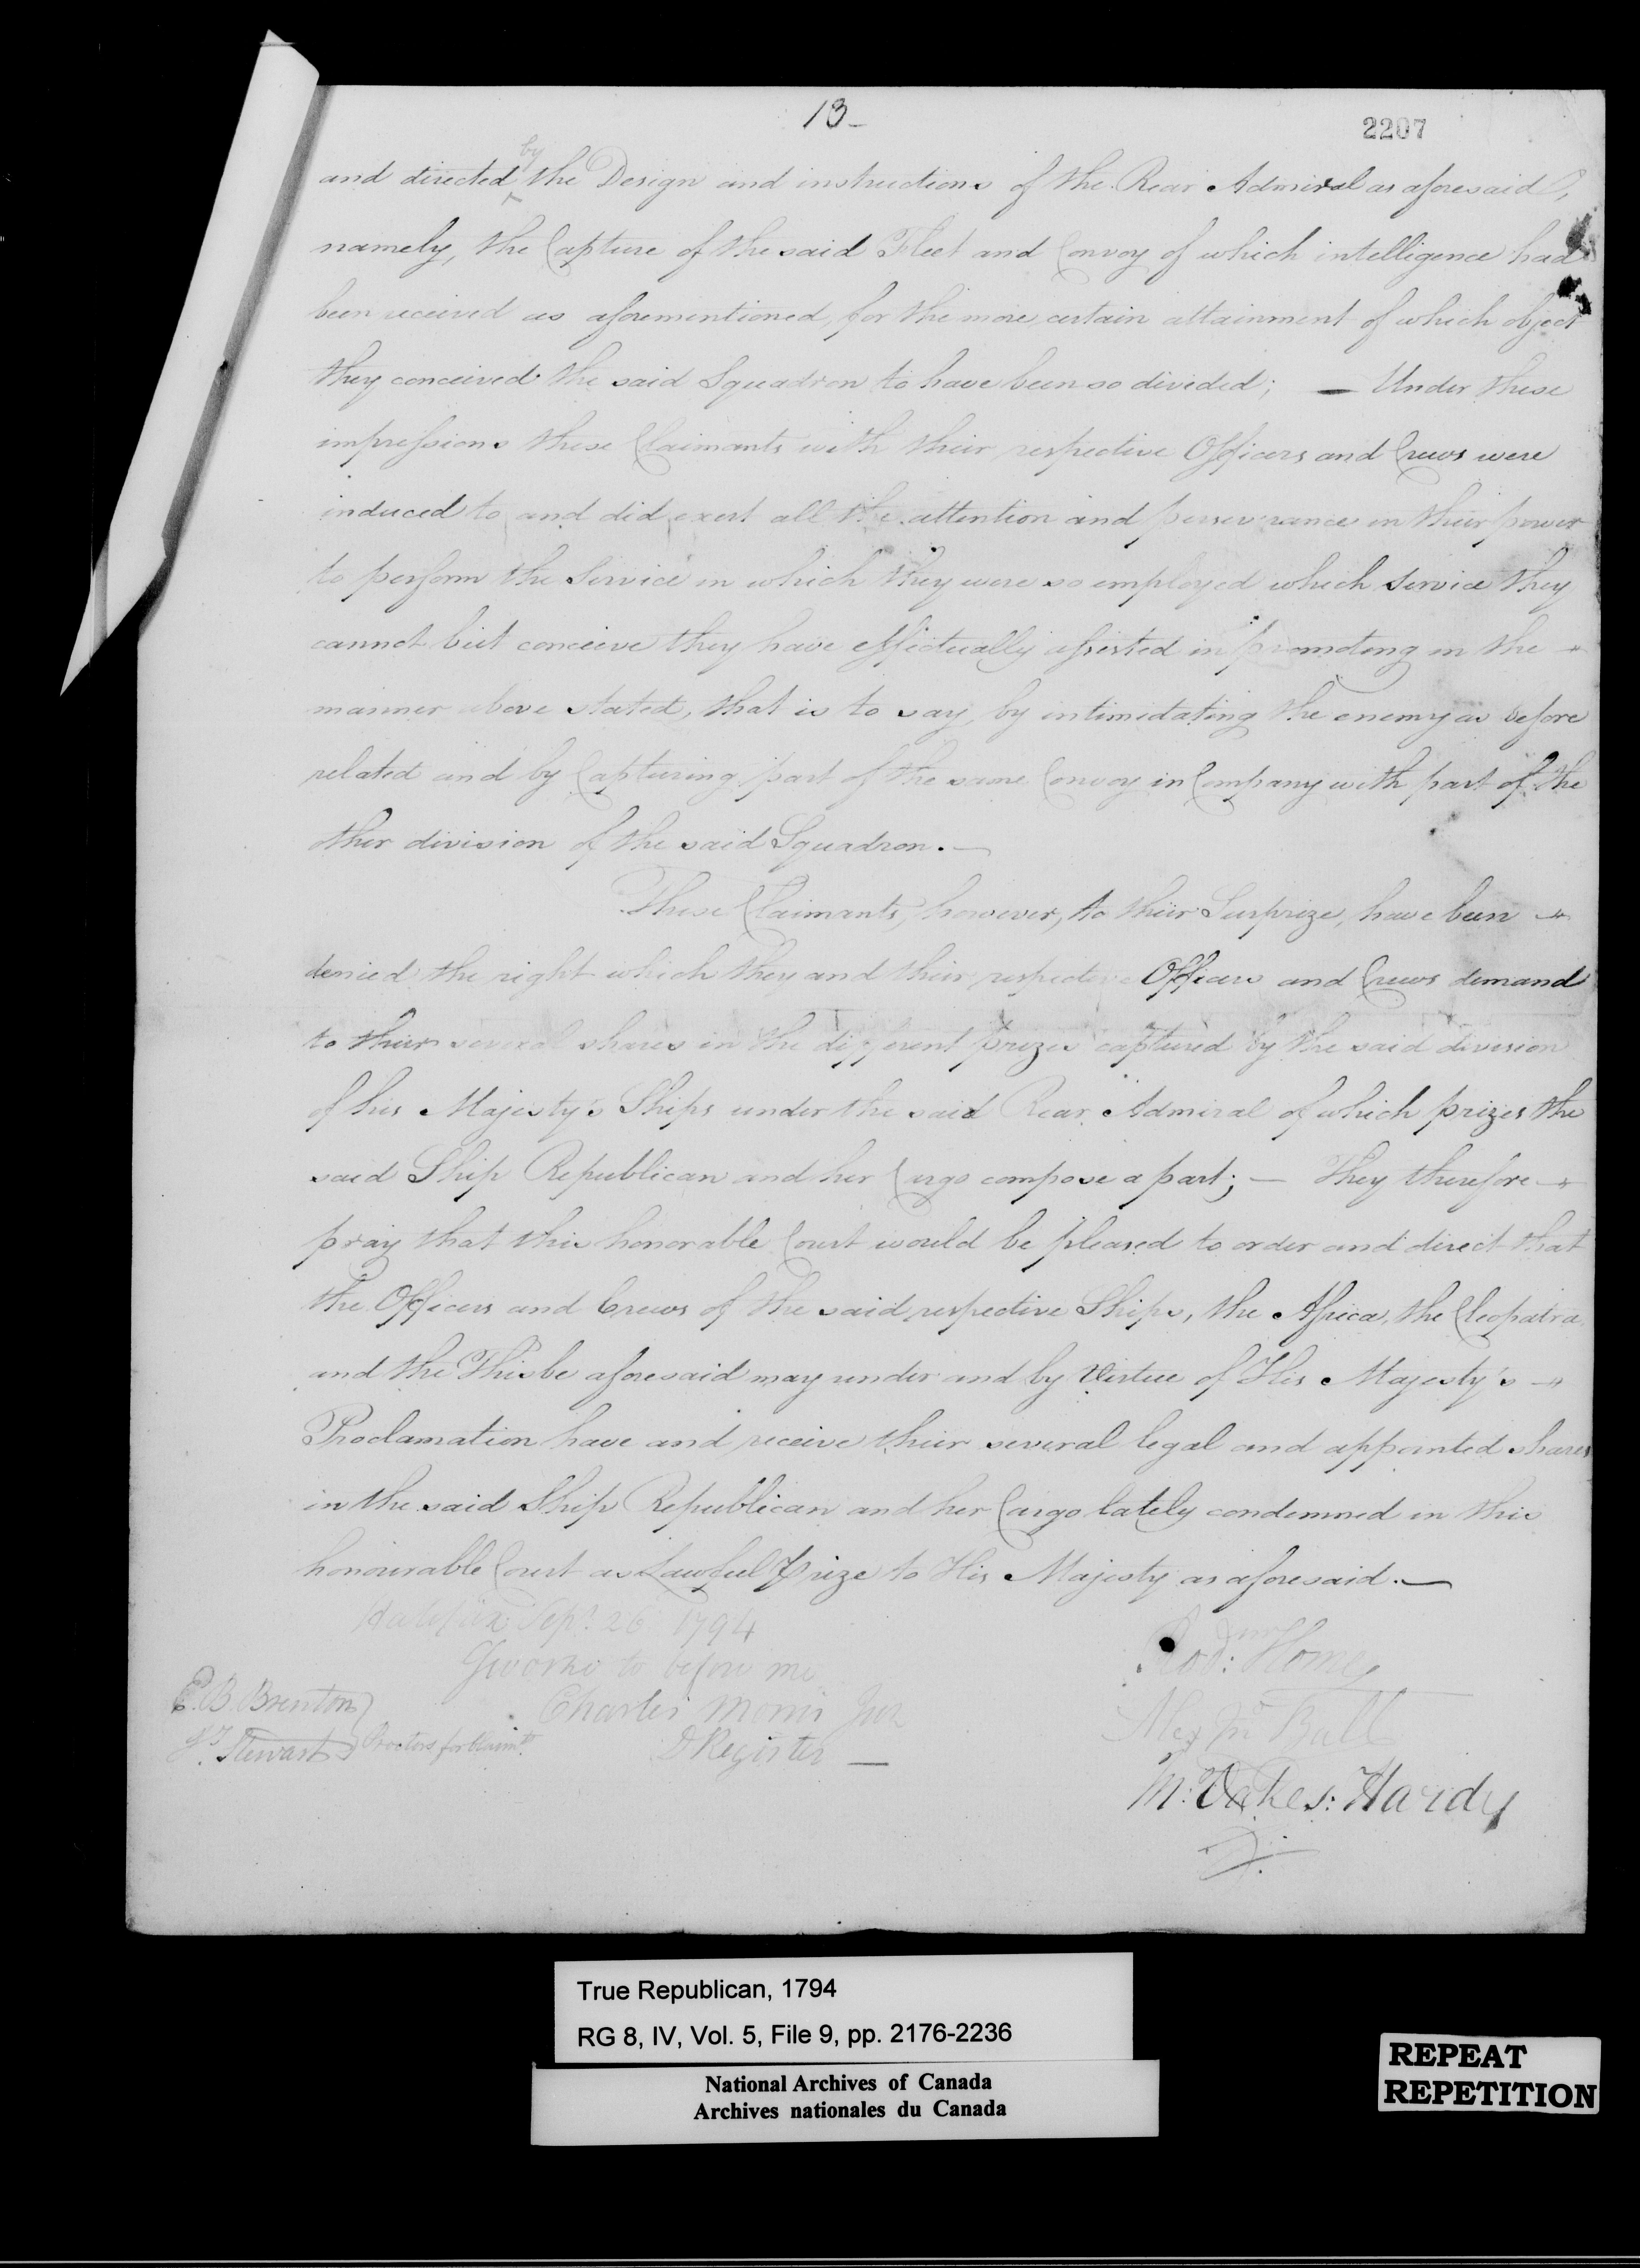 13-
2207
and directed by the Design and instructions of the Rear Admiral as aforesaid,
namely, the Capture of the said Fleet and Convoy of which intelligence had
been received as aforementioned, for the more certain attainment of which object
they conceived the said Squadron to have been so divided; — Under these
impressions these Claimants with their respective Officers and Crews were
induced to and did exert all the attention and perseverance in their power
to perform the Service in which they were so employed which Service they
cannot but conceive they have effectually assisted in promoting in the
manner above stated, that is to say, by intimidating the enemy as before
related and by Capturing part of the same Convoy in Company with part of the
other division of the said Squadron. —
These Claimants, however, to their Surprize, have been
denied the right which they and their respective Officers and Crews demand
to their several shares in the different prizes captured by the said division
of his Majesty's Ships under the said Rear Admiral of which prizes the
said Ship Republican and her Cargo compose a part; — They therefore
pray that this honorable Court would be pleased to order and direct that
the Officers and Crews of the said respective Ships, the Africa, the Cleopatra
and the Thisbe aforesaid may under and by Virtue of His Majesty's
Proclamation have and receive their several legal and appointed shares
in the said Ship Republican and her Cargo lately condemned in this
honourable Court as Lawful Prize to His Majesty as aforesaid. —
Halifax Sept. 26 1794
Rod: Home
Sworne to before me
E. B. Brenton
Charles Morris Jun
Alexr. Jno. Ball
Js. Stewart Proctors for Claimts.
D Register —
M: Oakes: Hardy
True Republican, 1794
RG 8, IV, Vol. 5, File 9, pp. 2176-2236
National Archives of Canada
Archives nationales du Canada
REPEAT
REPETITION